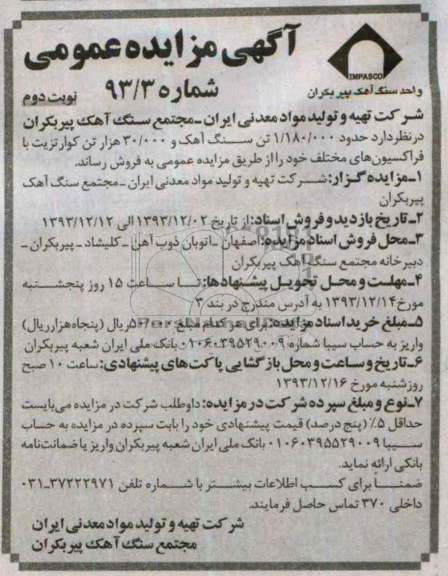 آگهی مزایده عمومی
شماره ۹۳/۳
نوبت دوم
IMPASCO
واحد سنگ آهک پیربکران
شرکت تهیه و تولید مواد معدنی ایران - مجتمع سنگ آهک پیربکران
درنظر دارد حدود ۱/۱۸۰/۰۰۰ تن سنگ آهک و ۳۰/۰۰۰ هزار تن کوارتزیت با
فراکسیون‌های مختلف خود را از طریق مزایده عمومی به فروش رساند.
۱-مزایده گزار: شرکت تهیه و تولید مواد معدنی ایران - مجتمع سنگ آهک
پیربکران
۲-تاریخ بازدید و فروش اسناد: از تاریخ ۱۳۹۳/۱۲/۰۲ الی ۱۳۹۳/۱۲/۱۲
۳-محل فروش اسناد مزایده: اصفهان - اتوبان ذوب آهن - کلیشاد - پیربکران -
دبیرخانه مجتمع سنگ آهک پیربکران
۴-مهلت و محل تحویل پیشنهادها: تا ساعت ۱۵ روز پنجشنبه
مورخ ۱۳۹۳/۱۲/۱۴ به آدرس مندرج در بند ۳
۵-مبلغ خرید اسناد مزایده: برای هر کدام مبلغ ۵۰/۰۰۰ ریال (پنجاه هزار ریال)
واریز به حساب سیبا شماره ۰۱۰۶۰۳۹۵۲۹۰۰۹ بانک ملی ایران شعبه پیربکران
۶-تاریخ و ساعت و محل بازگشایی پاکت های پیشنهادی: ساعت ۱۰ صبح
روز شنبه مورخ ۱۳۹۳/۱۲/۱۶
۷-نوع و مبلغ سپرده شرکت در مزایده: داوطلب شرکت در مزایده می‌بایست
حداقل ۵٪ (پنج درصد) قیمت پیشنهادی خود را بابت سپرده در مزایده به حساب
سیبا ۰۱۰۶۰۳۹۵۵۲۹۰۰۹ بانک ملی ایران شعبه پیربکران واریز یا ضمانت‌نامه
بانکی ارائه نماید.
ضمناً برای کسب اطلاعات بیشتر با شماره تلفن ۳۷۲۲۲۹۷۱-۰۳۱
داخلی ۳۷۰ تماس حاصل فرمایند.
شرکت تهیه و تولید مواد معدنی ایران
مجتمع سنگ آهک پیربکران